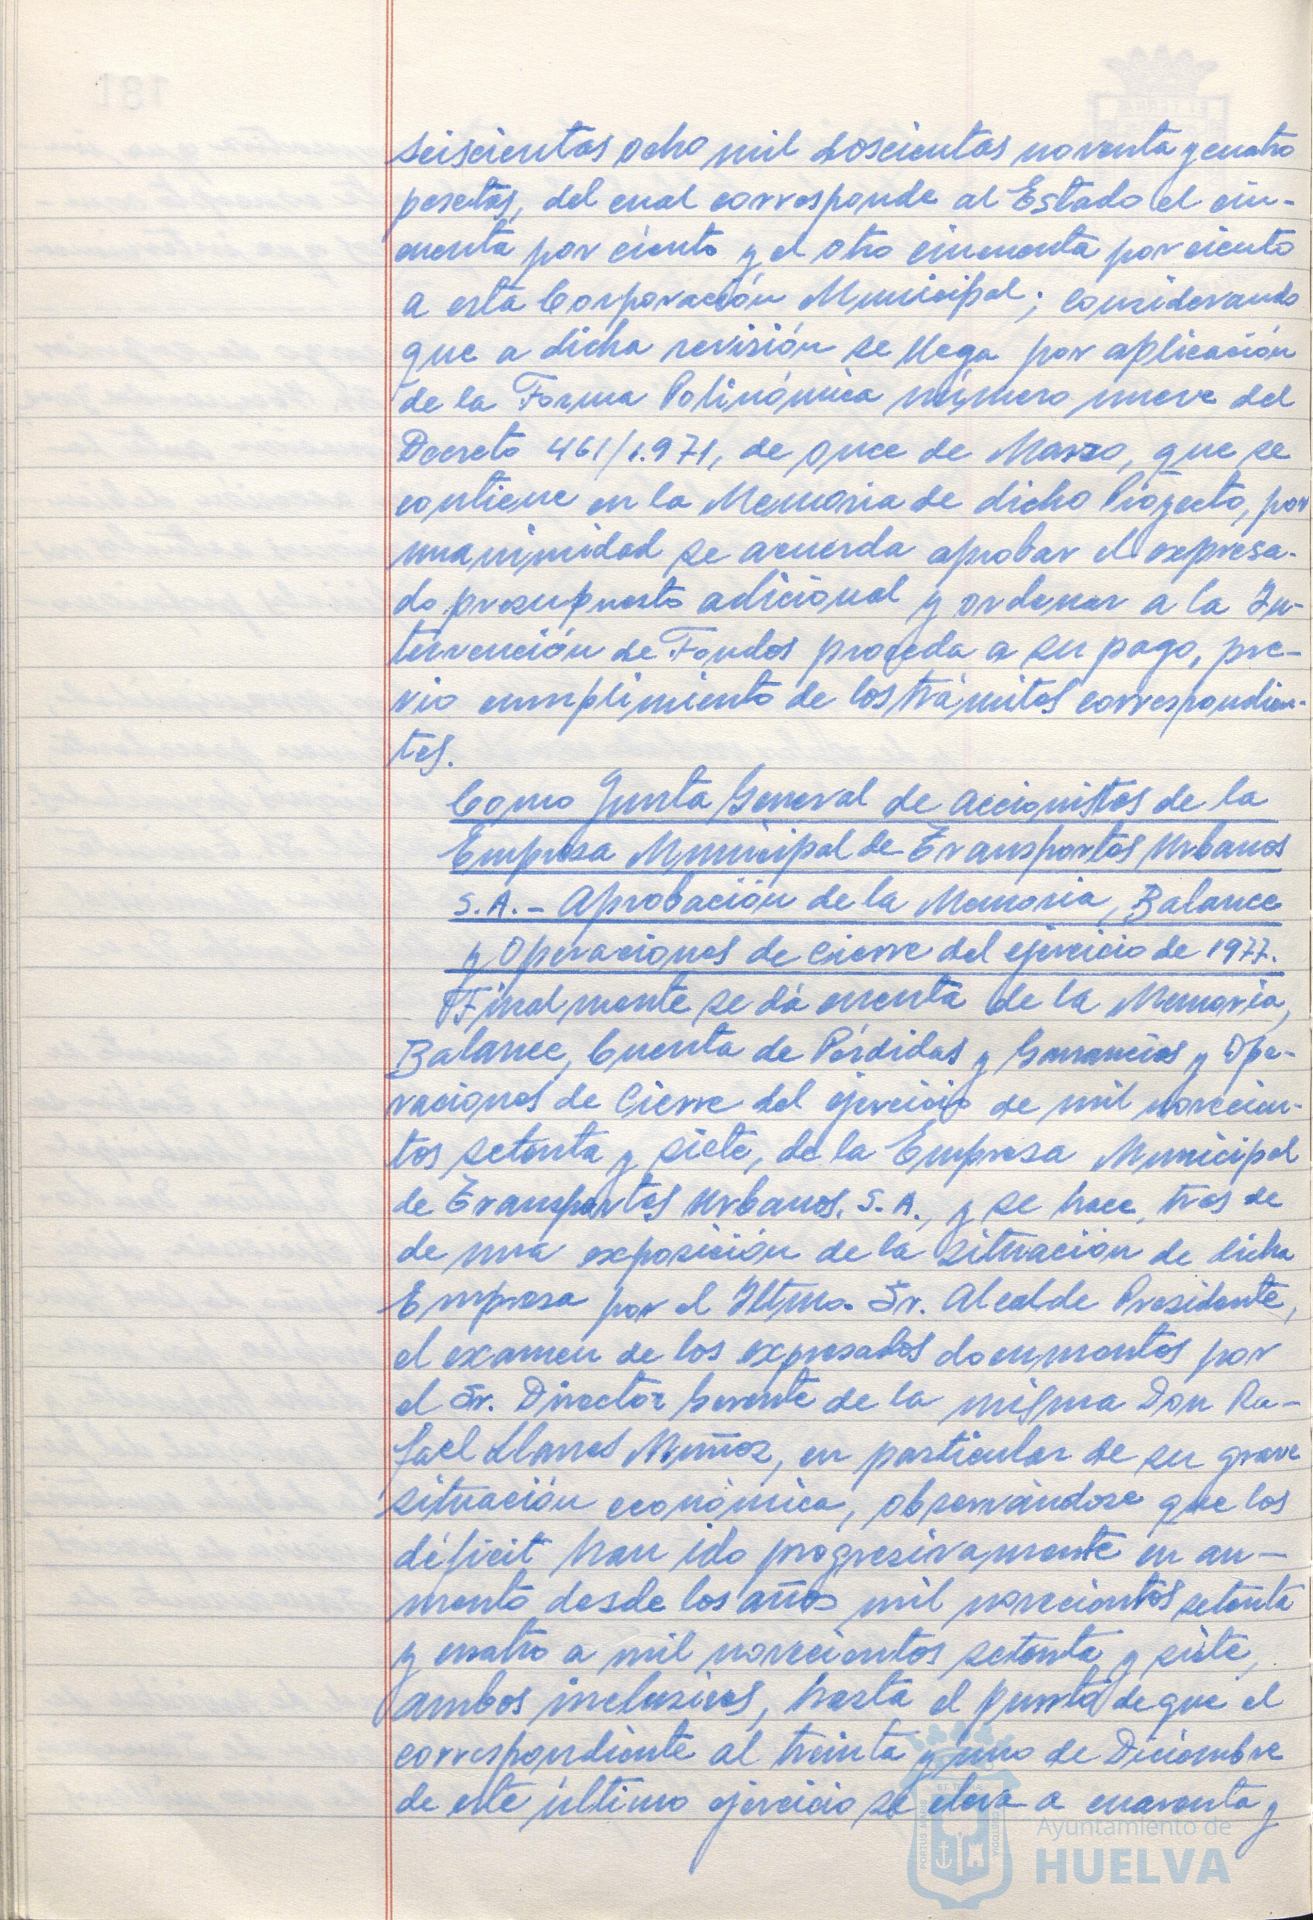 seiscientas ocho mil doscientas noventa y cuatro
pesetas, del cual corresponde al Estado el cin-
cuenta por ciento y el otro cincuenta por ciento
a esta Corporación Municipal; considerando
que a dicha revisión se llega por aplicación
de la Forma Polinómica número nueve del
Decreto 461/1.971, de once de Marzo, que se
contiene en la Memoria de dicho Proyecto, por
unanimidad se acuerda aprobar el expresa-
do presupuesto adicional y ordenar a la In-
tervención de Fondos proceda a su pago, pre-
vio cumplimiento de los trámites correspondien-
tes.
Como Junta General de accionistas de la
Empresa Municipal de Transportes Urbanos
S.A.- Aprobación de la Memoria, Balance
y Operaciones de cierre del ejercicio de 1977.
Finalmente se dá cuenta de la Memoria,
Balance, Cuenta de Pérdidas y Ganancias y Ope-
raciones de Cierre del ejercicio de mil novecien-
tos setenta y siete, de la Empresa Municipal
de Transportes Urbanos, S.A., y se hace, tras de
de una exposición de la situación de dicha
Empresa por el Iltmo. Sr. Alcalde Presidente,
el examen de los expresados documentos por
el Sr. Director Gerente de la misma Don Ra-
fael Llanes Muñoz, en particular de su grave
situación económica, observándose que los
déficit han ido progresivamente en au-
mento desde los años mil novecientos setenta
y cuatro a mil novecientos setenta y siete,
ambos inclusives, hasta el punto de que el
correspondiente al treinta y uno de Diciembre
de este último ejercicio se eleva a cuarenta y
Ayuntamiento de
HUELVA